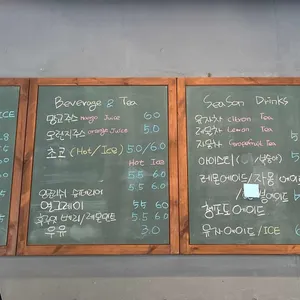 ICE
Beverage & Tea
망고주스 mango Juice 6.0
오렌지주스 orange Juice 5.0
초코 (Hot/ICE) 5.0/6.0
Hot Ice
5.5 6.0
5.5 6.0
얼그레이 5.5 6.0
5.5 6.0
우유 3.0
Season Drinks
유자차 citron Tea
레몬차 Lemon Tea
자몽차 Grapefruit Tea
아이스티
레몬에이드/자몽에이드
에이드
청포도에이드
유자에이드/ICE 6